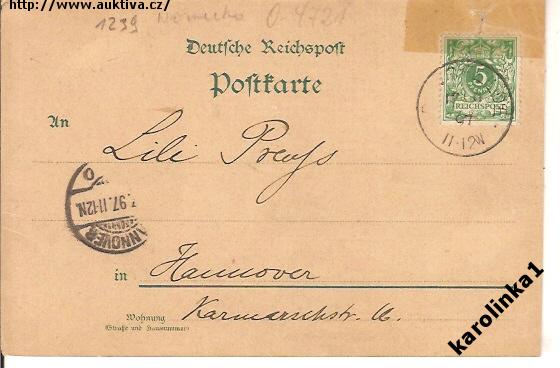 http://www.auktiva.cz/
1239 Německo 0-472
Deutsche Reichspost
Postkarte
5
PFENNIG
REICHSPOST
97
11-12N
An
Lili Preuß
HANNOVER
.97.11-12N.
in Hannover
Wohnung
(Straße und Hausnummer)
Karmarschstr. 16.
karolinka1